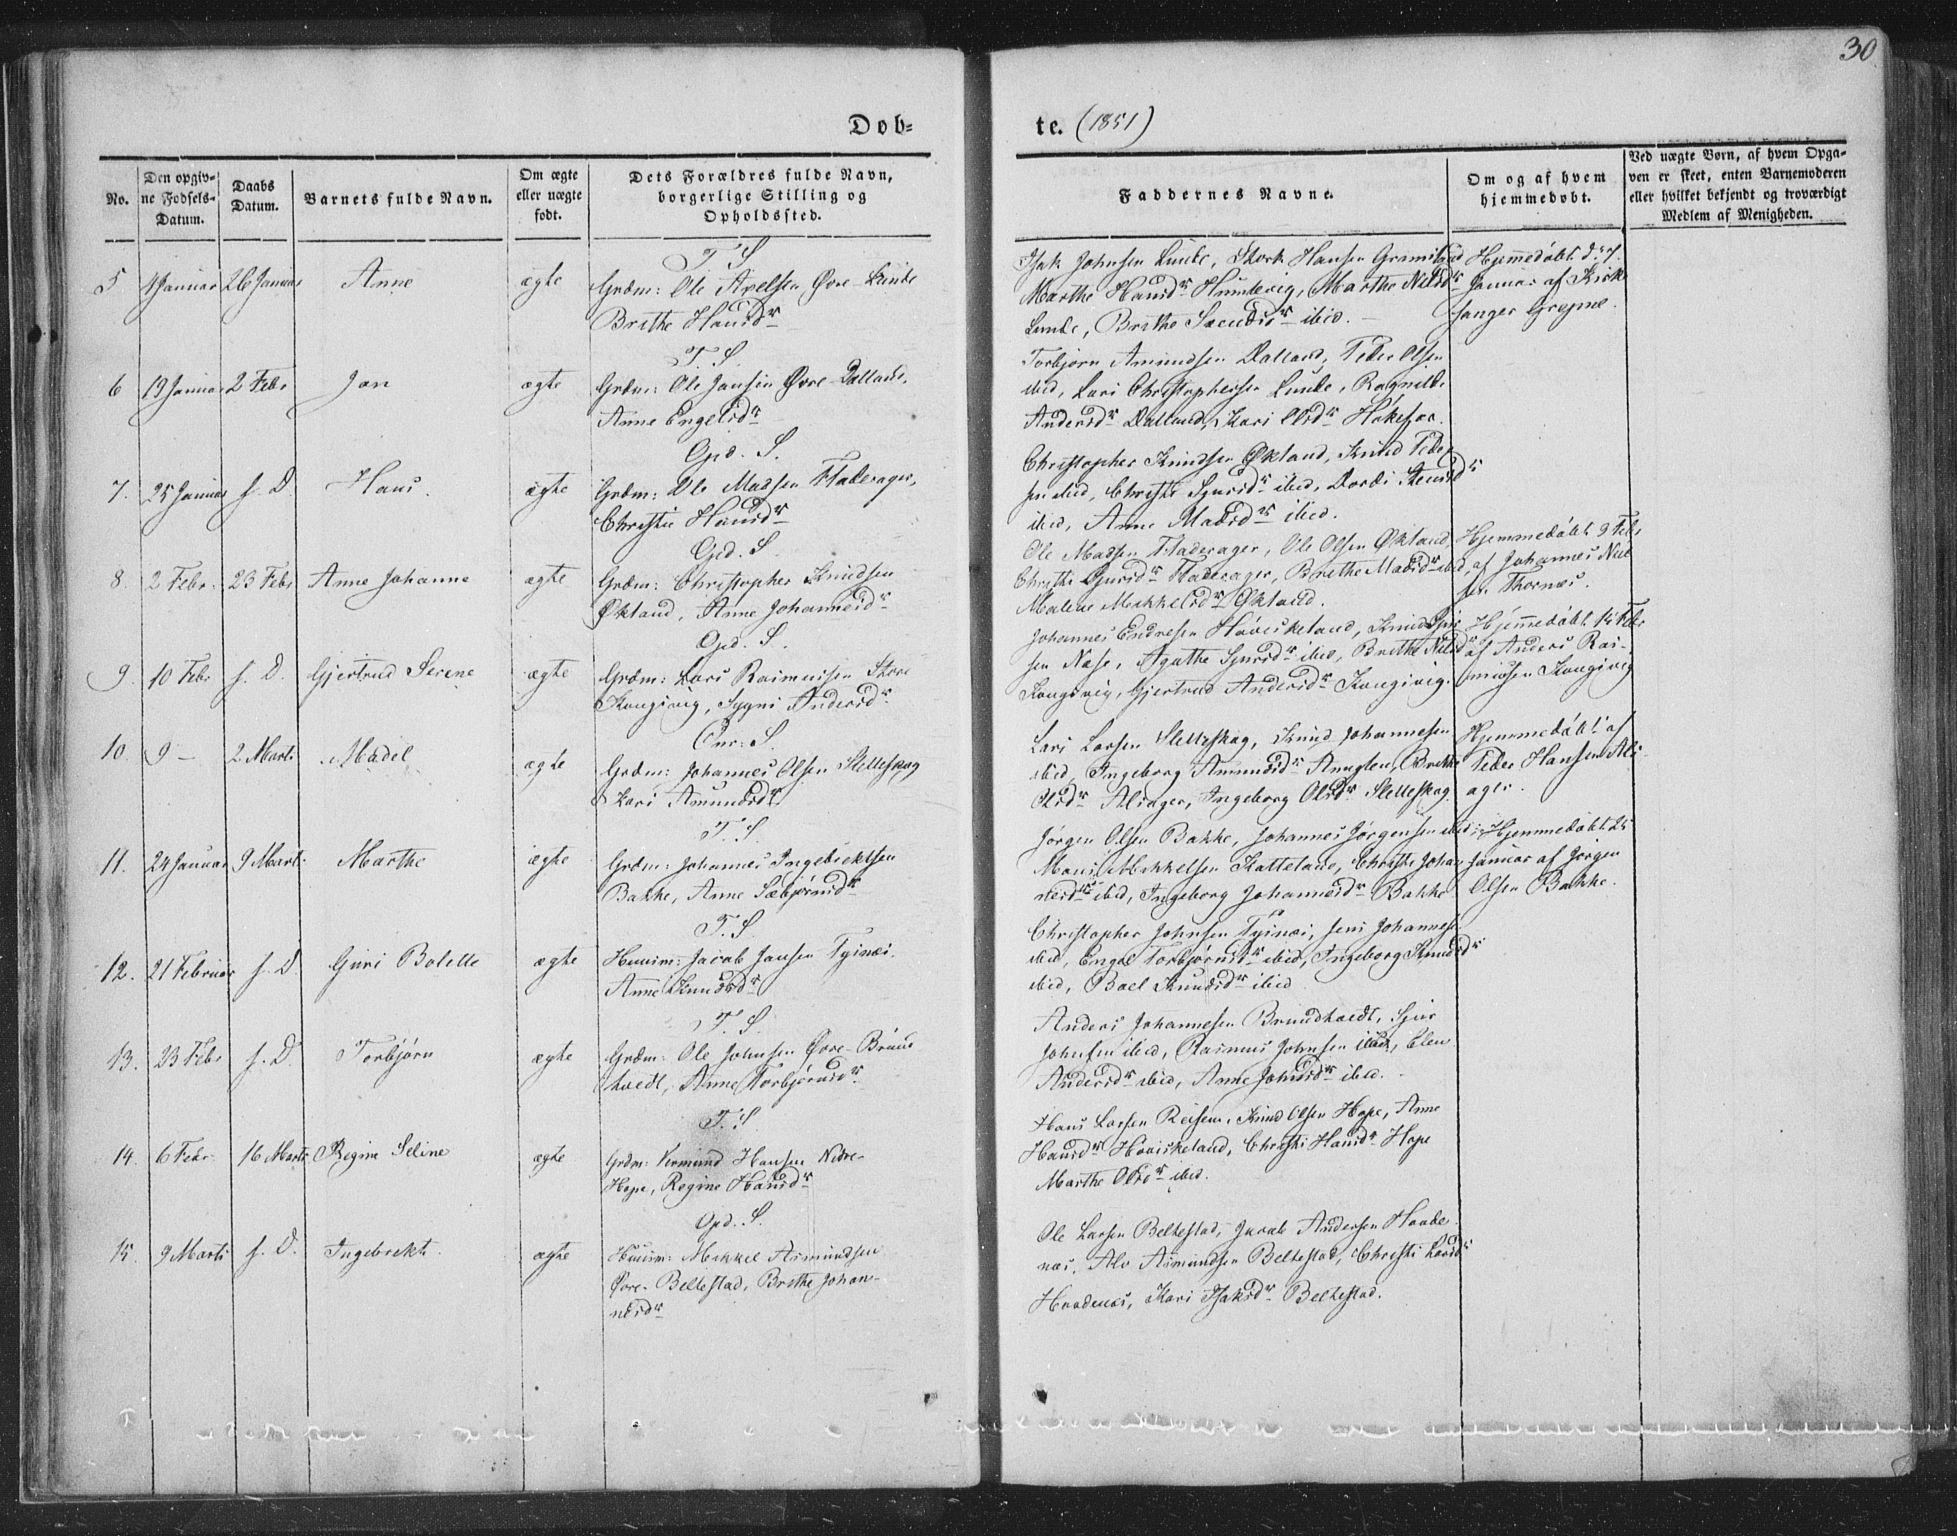 30
Døb=
te. (1851)
No.
Den opgiv=
ne Fødsels=
Datum.
Daabs
Datum.
Barnets fulde Navn.
Om ægte
eller uægte
født.
Dets Forældres fulde Navn,
borgerlige Stilling og
Opholdssted.
Faddernes Navne.
Om og af hvem
hjemmedøbt.
Ved uægte Børn, af hvem Opga=
ven er skeet, enten Barnemoderen
eller hvilket bekjendt og troværdigt
Medlem af Menigheden.
T. S
5 Januar 26 Januar Anne ægte Grdm: Ole Axelsen Øvre-Lunde
Brithe Hansdr
Isak Johnsen Lunde, Hansen
Marthe Hansdr Humlevig, Marthe Nilsdr
Lunde, Brithe Svendsdr ibid.
Hjemmedøbt d. 7.
Januar af Kirke
sanger Grepne.
T. S.
6 19 Januar 2 Febr Jan ægte Grdm: Ole Jansen Øvre-Dalland,
Anne Engelsdr
Torbjørn Amundsen Dalland, Peder Olsen
ibid, Lars Christophersen Lunde, Ragnilde
Andersdr Dalland, Kari Olsdr
Opd. S.
7. 25 Januar s. D. Hans. ægte Grdm: Ole Madsen Fladerager,
Christie Hansdr
Christopher Knudsen Økland, Knud Peder
sen ibid, Christi Sjursdr ibid, Dordi
ibid, Anne Madsdr ibid.
Opd. S.
8. 2 Febr. 23 Febr Anne Johanne ægte Grdm: Christopher Knudsen
Økland, Anne Johannesdr
Ole Madsen Fladerager, Ole Olsen Økland
Christi Sjursdr Fladerager, Brithe Madsdr ibid,
Malene Mikkelsdr Økland.
Hjemmedøbt 9 Febr
af Johannes Niel
sen Thornæs.
Opd. S.
9. 10 Febr s. D. Gjertrud Serine ægte Grdm: Lars Rasmussen Store
Kongsvig, Sygni Andersdr
Johannes Endresen Høviskeland, Knud Sjur
sen Næse, Agathe Sjursdr ibid, Brithe Nilsdr
Kongsvig, Gjertrud Andersdr Kongsvig.
Hjemmedøbt 15 Febr
af Anders Ras-
mussen Kongsvig
Onr: S.
10. 9 – 2 Marts Madel ægte Grdm: Johannes Olsen Sletteskog
Kari Amundsdr
Lars Larsen Sletteskog, Knud Johannesen
ibid, Ingeborg Amundsdr Anuglen, Brithe
Olsdr Alsager, Ingeborg Olsdr Sletteskog
Hjemmedøbt af
Peder Hansen Als-
ager.
T. S.
11. 24 Januar 9 Marts Marthe ægte Grdm: Johannes Ingebrektsen
Bakke, Anne Sæbjørnsdr
Jørgen Olsen Bakke, Johannes Jørgensen ibid
Mons Mikkelsen Katteland, Christi Johan
nesdr ibid, Ingeborg Johannesdr Bakke
Hjemmedøbt 25
Januar af Jørgen
Olsen Bakke.
T. S.
12. 21 Februar s. D. Guri Bolette ægte Huusm: Jacob Jansen Tysnæs.
Anne Knudsdr
Christopher Johnsen Tysnæs, Jens Johannes
ibid, Engel Torbjørnsdr ibid, Ingeborg Knudsdr
ibid, Boel Knudsdr ibid
T. S.
13. 23 Febr s. D. Torbjørn ægte Grdm: Ole Johnsen Øvre-Bruns
hvedt, Anne Torbjørnsdr
Anders Johannesen Brundtvedt, Sjur
Johnsen ibid, Rasmus Johnsen ibid, Elen
Andersdr ibid, Anne Johnsdr ibid.
T. S.
14. 6 Febr 16 Marts Regine Seline ægte Grdm: Vermund Hansen Nedre-
Hope, Regine Hansdr
Hans Larsen Reisene, Knud Olsen Hope, Anne
Hansdr Hoviskeland, Christi Hansdr Hope
Marthe Olsdr ibid.
Opd. S.
15. 9 Marts s. D. Ingebrekt. ægte Huusm: Mikkel Asmundsen
Øvre-Beltestad, Brithe Johan-
nesdr
Ole Larsen Beltestad, Jacob Andersen Haade
næs, Alv Asmundsen Beltestad, Christi Larsdr
Haadenæs, Kari Isaksdr Beltestad.